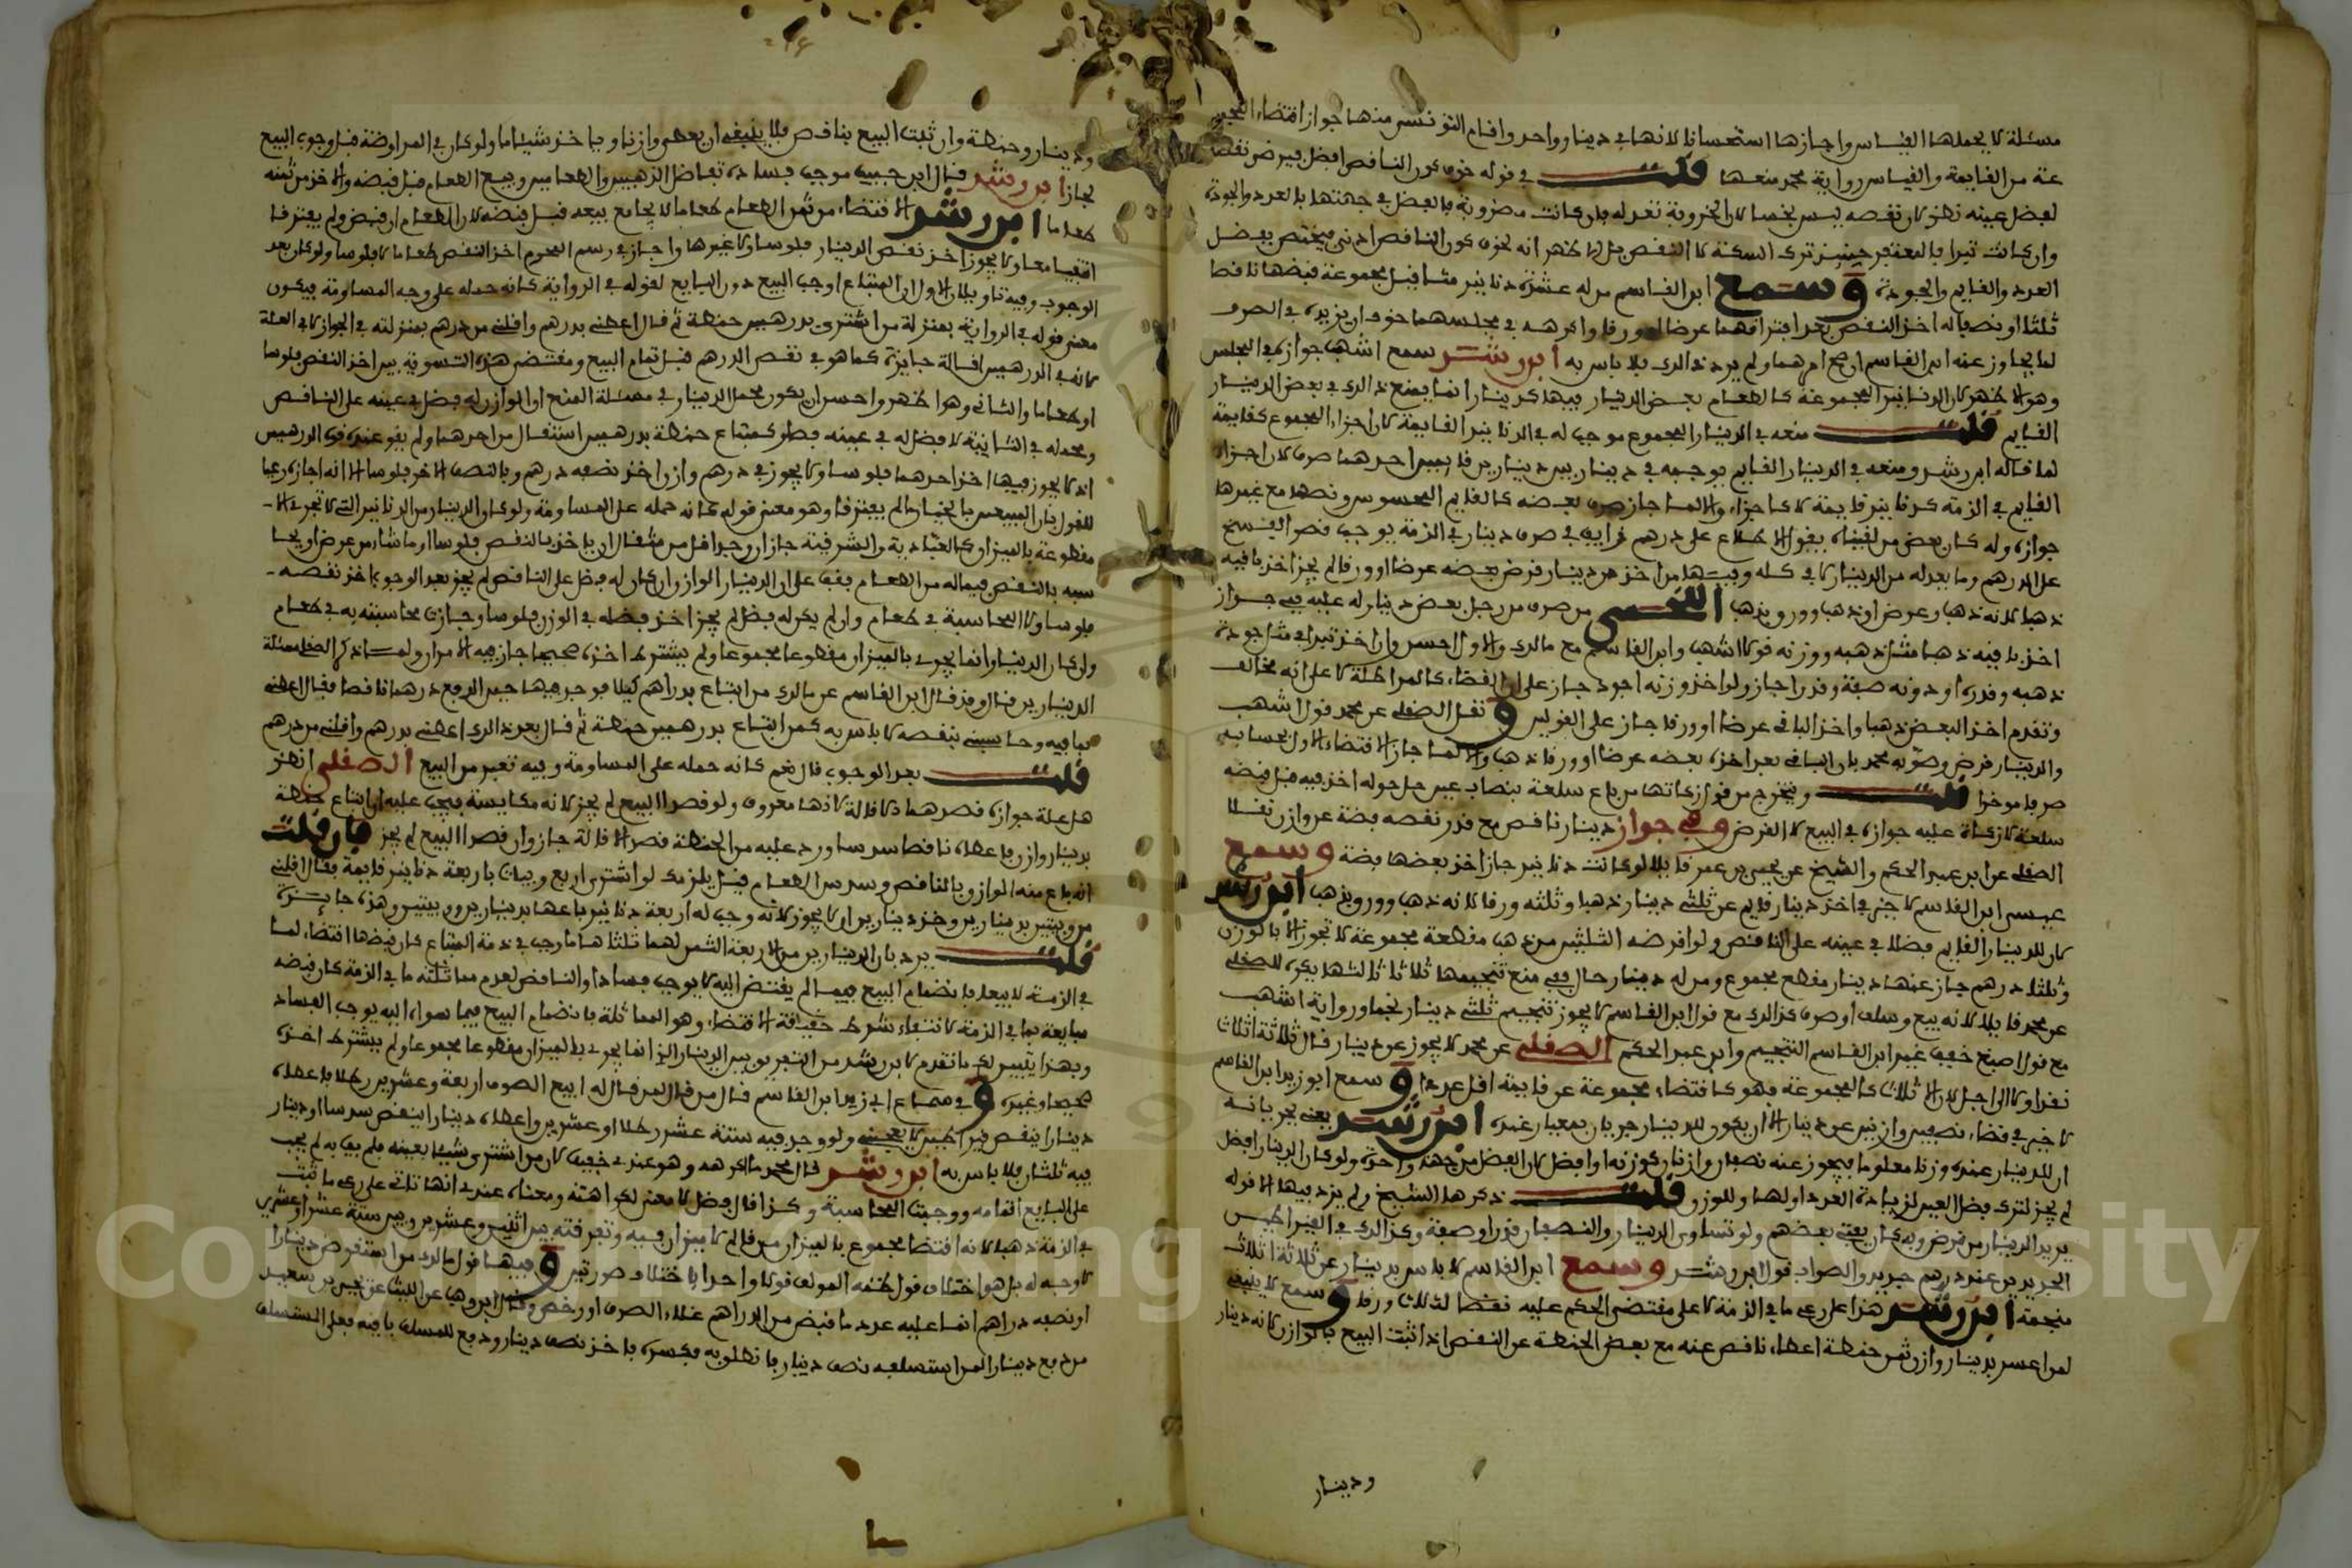 مسئلة لا يحملها القياس واجازها استحسانا لانها في دينار واحد واقام التونسي منها جواز اقتضاء المجمو
عة من القايمة والقياس رواية محمد منعها قلت في قوله خوف كون الناقص افضل بعرض نقصا
لفضل عينه نظر لان نقصه ليس
وان كانت تبرا فالمعتبر حينئذ ترك السكة لا النقص بل الاظهر انه لخوف كون الناقص ادنى فيختص بفضل
العدد والقايم والجودة وسمع ابن القاسم من له عشرة دنانير مثاقيل مجموعة فقبضها ناقصا
ثلثا او نصفا له اخذ النقص بعد افتراقهما عرضا او ورقا واكرهه في مجلسهما خوف ان يزيده في الصرف
لما يجاوز عنه ابن القاسم ان صح امرهما ولم يرد ذالك فلا باس به ابن رشد سمع اشهب جوازه في المجلس
وهو الاظهر لان الدنانير المجموعة كالطعام بعض الدينار فيها كدينار انما يمنع ذالك في بعض الدينار
القايم قلت منعه في الدينار المجموع موجب له في الدنانير القايمة لان اجزاء المجموع كقايمة
لما قاله ابن رشد ومنعه في الدينار القايم يوجبه في دينارين من دينارين قايمين احدهما صرف لان اجزاء
القايم في الذمة كدنانير قايمة لا كاجزاء والا لما جاز صرف بعضه كالقايم المحسوس ونصها مع غيرها
جوازه وله كان بعض من لقيناه يقول الاطلاع على درهم زايف في صرف دينار في الذمة يوجب قصر الفسخ
على الدرهم وما يعدله من الدينار لا في كله وفيها من اخذ من دينار قرض بعضه عرضا او ورقا لم يجز اخذ باقيه
ذهبا لانه ذهب وعرض او ذهب وورق بذهب اللخمي من صرف من رجل بعض دينار له عليه ففي جواز
اخذ باقيه ذهبا مثل ذهبه ووزنه قولا اشهب وابن القاسم مع مالك والاول احسن وان اخذ تبرا في مثل جودة
ذهبه وقدره او دونه صفة وقدرا جاز ولو اخذ وزنه اجود جاز على ان القضاء كالمراطلة لا على انه مخالف
وتقدم اخذ البعض ذهبا واخذ الباقي عرضا او ورقا جاز على القولين ونقل الصقلي عن محمد قول اشهب
والدينار قرض وصوبه محمد بان الباقي بعد اخذه بعضه عرضا او ورقا ذهب والا لما جاز الاقتضاء الاول لحسابه
صرفا موخرا قلت ويتخرج من قول زكاتها من باع سلعة بنصاب عين حل حوله اخذ فيه قبل قبضه
سلعة لا زكاة عليه جوازه في البيع لا القرض وفي جواز دينار ناقص مع قدر نقصه فضة عن وازن نقلا
الصقلي عن ابن عبد الحكم والشيخ عن يحيى بن عمر قايلا لو كانت دنانير جاز اخذ بعضها فضة وسمع
عيسى ابن القاسم لا خير في اخذ دينار قايم عن ثلثي دينار ذهبا وثلثه ورقا لانه ذهب وورق بذهب ابن رشد
لان للدينار القايم فضلا في عينه على الناقص ولو اقرضه الثلثين من ذهب مقطعة مجموعة لا تجوز الا بالوزن
وثلثا درهم جاز عنها دينار مقطع مجموع ومن له دينار حال ففي منع تنجيمها ثلاثا ثالثها يكره للصقلي
عن محمد قايلا لانه بيع وسلف او صرف كذالك مع قول ابن القاسم لا يجوز تنجيم ثلثي دينار نجما ورواية اشهب
مع قول اصبغ خفف غير ابن القاسم التنجيم وابن عبد الحكم الصقلي عن محمد لا يجوز عن دينار قال ثلاثة اثلاث
نقدا ولا الى اجل لان الاثلاث كالمجموعة فهو كاقتضاء مجموعة عن قايمة اقل عددا وسمع ابو زيد ابن القاسم
لا خير في قضاء نصفين وازنين عن دينار الا ان يكون للدينار جريان بمعيار غيره ابن رشد يعني يجريانه
ان للدينار عنده وزنا معلوما فيجوز عنه نصفان وازنان كوزنه او افضل لان الفضل من جهة واحدة ولو كان الدينار افضل
لم يجز لترك فضل العين لزيادة العدد اولها وللوزن قلت ذكرها الشيخ ولم يزد فيها الا قوله
يريد الدينار من قرض وبه كان يفتي بعضهم ولو تساوى الدينار والنصفان قدرا وصفة وكذالك في القيراطين
الجريدين عند درهم جريد والصواب قول ابن رشد وسمع ابن القاسم لا باس بدينار عن ثلاثة اثلاث
منجمة ابن رشد هذا على رعي ما في الذمة لا على مقتضى الحكم عليه نقضا لثلاث ورقا وسمع لا ينبغي
لمن اعسر بدينار وازن ثمن حنطة اعطاء ناقص عنه مع بعض الحنطة عن النقص اذا ثبت البيع بالوازن لانه دينار
ودينار
ودينار وحنطة وان ثبت البيع بناقص فلا ينبغي ان يعطي وازنا وياخذ شيئا ما ولو كان في المراوضة قبل وجوب البيع
لجاز ابن رشد قال ابن حبيب موجب فساده تفاضل الذهبين والطعامين وبيع الطعام قبل قبضه والاخذ من ثمنه
طعاما ابن رشد الاقتضاء من ثمن الطعام طعاما لا يجامع بيعه قبل قبضه لان الطعام ان قبض ولم يفترقا
انتفيا معا ولا يجوز اخذ نقص الدينار فلوسا ولا غيرها واجاز في رسم المحرم اخذ النقص طعاما لا فلوسا ولو كان بعد
الوجوب وفيه تاويلان الاول ان المبتاع اوجب البيع دون البايع لقوله في الرواية كانه حمله على وجه المساومة فيكون
معنى قوله في الرواية بمنزلة من اشترى بدرهمين حنطة ثم قال اعطني بدرهم واقلني من درهم بمنزلته في الجواز لا في العلة
لانه في الدرهمين اقالة جايزة كما هو في نقص الدرهم قبل تمام البيع ومقتضى هذه التسوية بين اخذ النقص فلوسا
او طعاما والثاني وهو اظهر واحسن ان يكون محمل الدينار في مسئلة المنع ان الوازن له فضل في عينه على الناقص
ومحمله في الثانية لا فضل له في عينه فهو كمبتاع حنطة بدرهمين استقال من احدهما ولم يفو عنده في الدرهمين
اذ لا يجوز فيها اخذ احدهما فلوسا ولا يجوز في درهم وازن اخذ نصفه درهم وبالنصف الاخر فلوسا الا انه اجازه رعيا
للقول بان البيعين بالخيار ما لم يفترقا وهو معنى قوله كانه حمله على المساومة ولو كان الدينار من الدنانير التي لا تجوز الا
مقطوعة بالميزان كالعبادية والشرقية جاز ان وجد اقل من مثقال ان ياخذ بالنقص فلوسا او ما شاء من عرض او يحا
سبه بالنقص فيما له من الطعام يفي على ان الدينار الوازن ان كان له فضل على الناقص لم يجز بعد الوجوب اخذ نقصه
فلوسا ولا المحاسبة في طعام وان لم يكن له فضل لم يجز اخذ فضله في الوزن فلوسا وجازت محاسبته به في طعام
وان كان الدينار انما يجري بالميزان مقطوعا مجموعا ولم يشترط اخذه صحيحا جاز فيه الامران ولما ذكر الصقلي مسئلة
الدينارين قال وقد قال ابن القاسم عن مالك من ابتاع بدراهم كيلا فوجد فيها حين الدفع درهما ناقصا فقال اعطني
بما فيه وحاسبني بنقصه لا باس به كمن ابتاع بدرهمين حنطة ثم قال بعد ذالك اعطني بدرهم واقلني من درهم
قلت بعد الوجوب قال نعم كانه حمله على المساومة وفيه تغيير من البيع الصقلي انظر
هل علة جوازه قصرهما الاقالة لانها معروف ولو قصرا البيع لم يجز لانه مكايسة فيجب عليه ان ابتاع حنطة
بدينار وازن فاعطاه ناقصا سدسا ورد عليه من الحنطة قصر الاقالة جاز وان قصرا البيع لم يجز فان قلت
انه باع منه الوازن بالناقص وسدس الطعام قيل يلزمك لو اشترى اربع ويبات باربعة دنانير قايمة فقال اقلني
من ويبتين بدينارين وخذ دينارين ان لا يجوز لانه وجب له اربعة دنانير باعها بدينارين وويبتين وهذه جايزة
قلت يرد بان الدينارين من الاربعة الثمن لهما ثلثا هما ما وجب في ذمة المبتاع فكان قبضهما اقتضاء لما
في الذمة لا بيعا بانضمام البيع فيما لم يقتض اليه لا يوجب فسادا والناقص لعدم مماثلته ما في الذمة كان قبضه
مبايعة بما في الذمة لانتفاء شرط حقيقة الاقتضاء وهو المماثلة فانضمام البيع فيما سواه اليه يوجب الفساد
وبهذا يتبين لك ما تقدم لابن رشد من التفريق بين الدينار الذي انما يجري بالميزان مقطوعا مجموعا ولم يشترط اخذه
صحيحا وغيره وفي سماع ابي زيد ابن القاسم قال من قال لمن قال له ابيع الصوف اربعة وعشرين رطلا فاعطاه
دينارا ينقص قيراطين لا يعجبني ولو وجد فيه ستة عشر رطلا او عشرين واعطاه دينارا ينقص سدسا او دينار
فيه ثلثان فلا باس به ابن رشد قال محمد ما اكرهه وهو عندي خفيف لان من اشترى شيئا بعينه فلم يف به لم يجب
على البايع اتمامه ووجبت المحاسبة وكذا قال فضل لا معنى لكراهته ومعناه عندي انها تاتي على رعي ما ثبت
في الذمة ذهبا لانه اقتضا مجموع بالميزان من قايم لا ميزان فيه وتفرقته بين اثنين وعشرين وبين ستة عشر او عشرين
لا وجه له بل هو اختلاف قول ظنه المولف قولا واحدا باختلاف صورتين وفيها قول مالك من استقرض دينارا
او نصفه دراهم انما عليه عدد ما قبض من الدراهم غلا الصرف او رخص وقال ابن وهب عن الليث عن يحيى بن سعيد
من دفع دينارا لمن استسلفه نصف دينار فانطلق به فكسره فاخذ نصف دينار ودفع للمسلف باقيه فعلى المتسلف